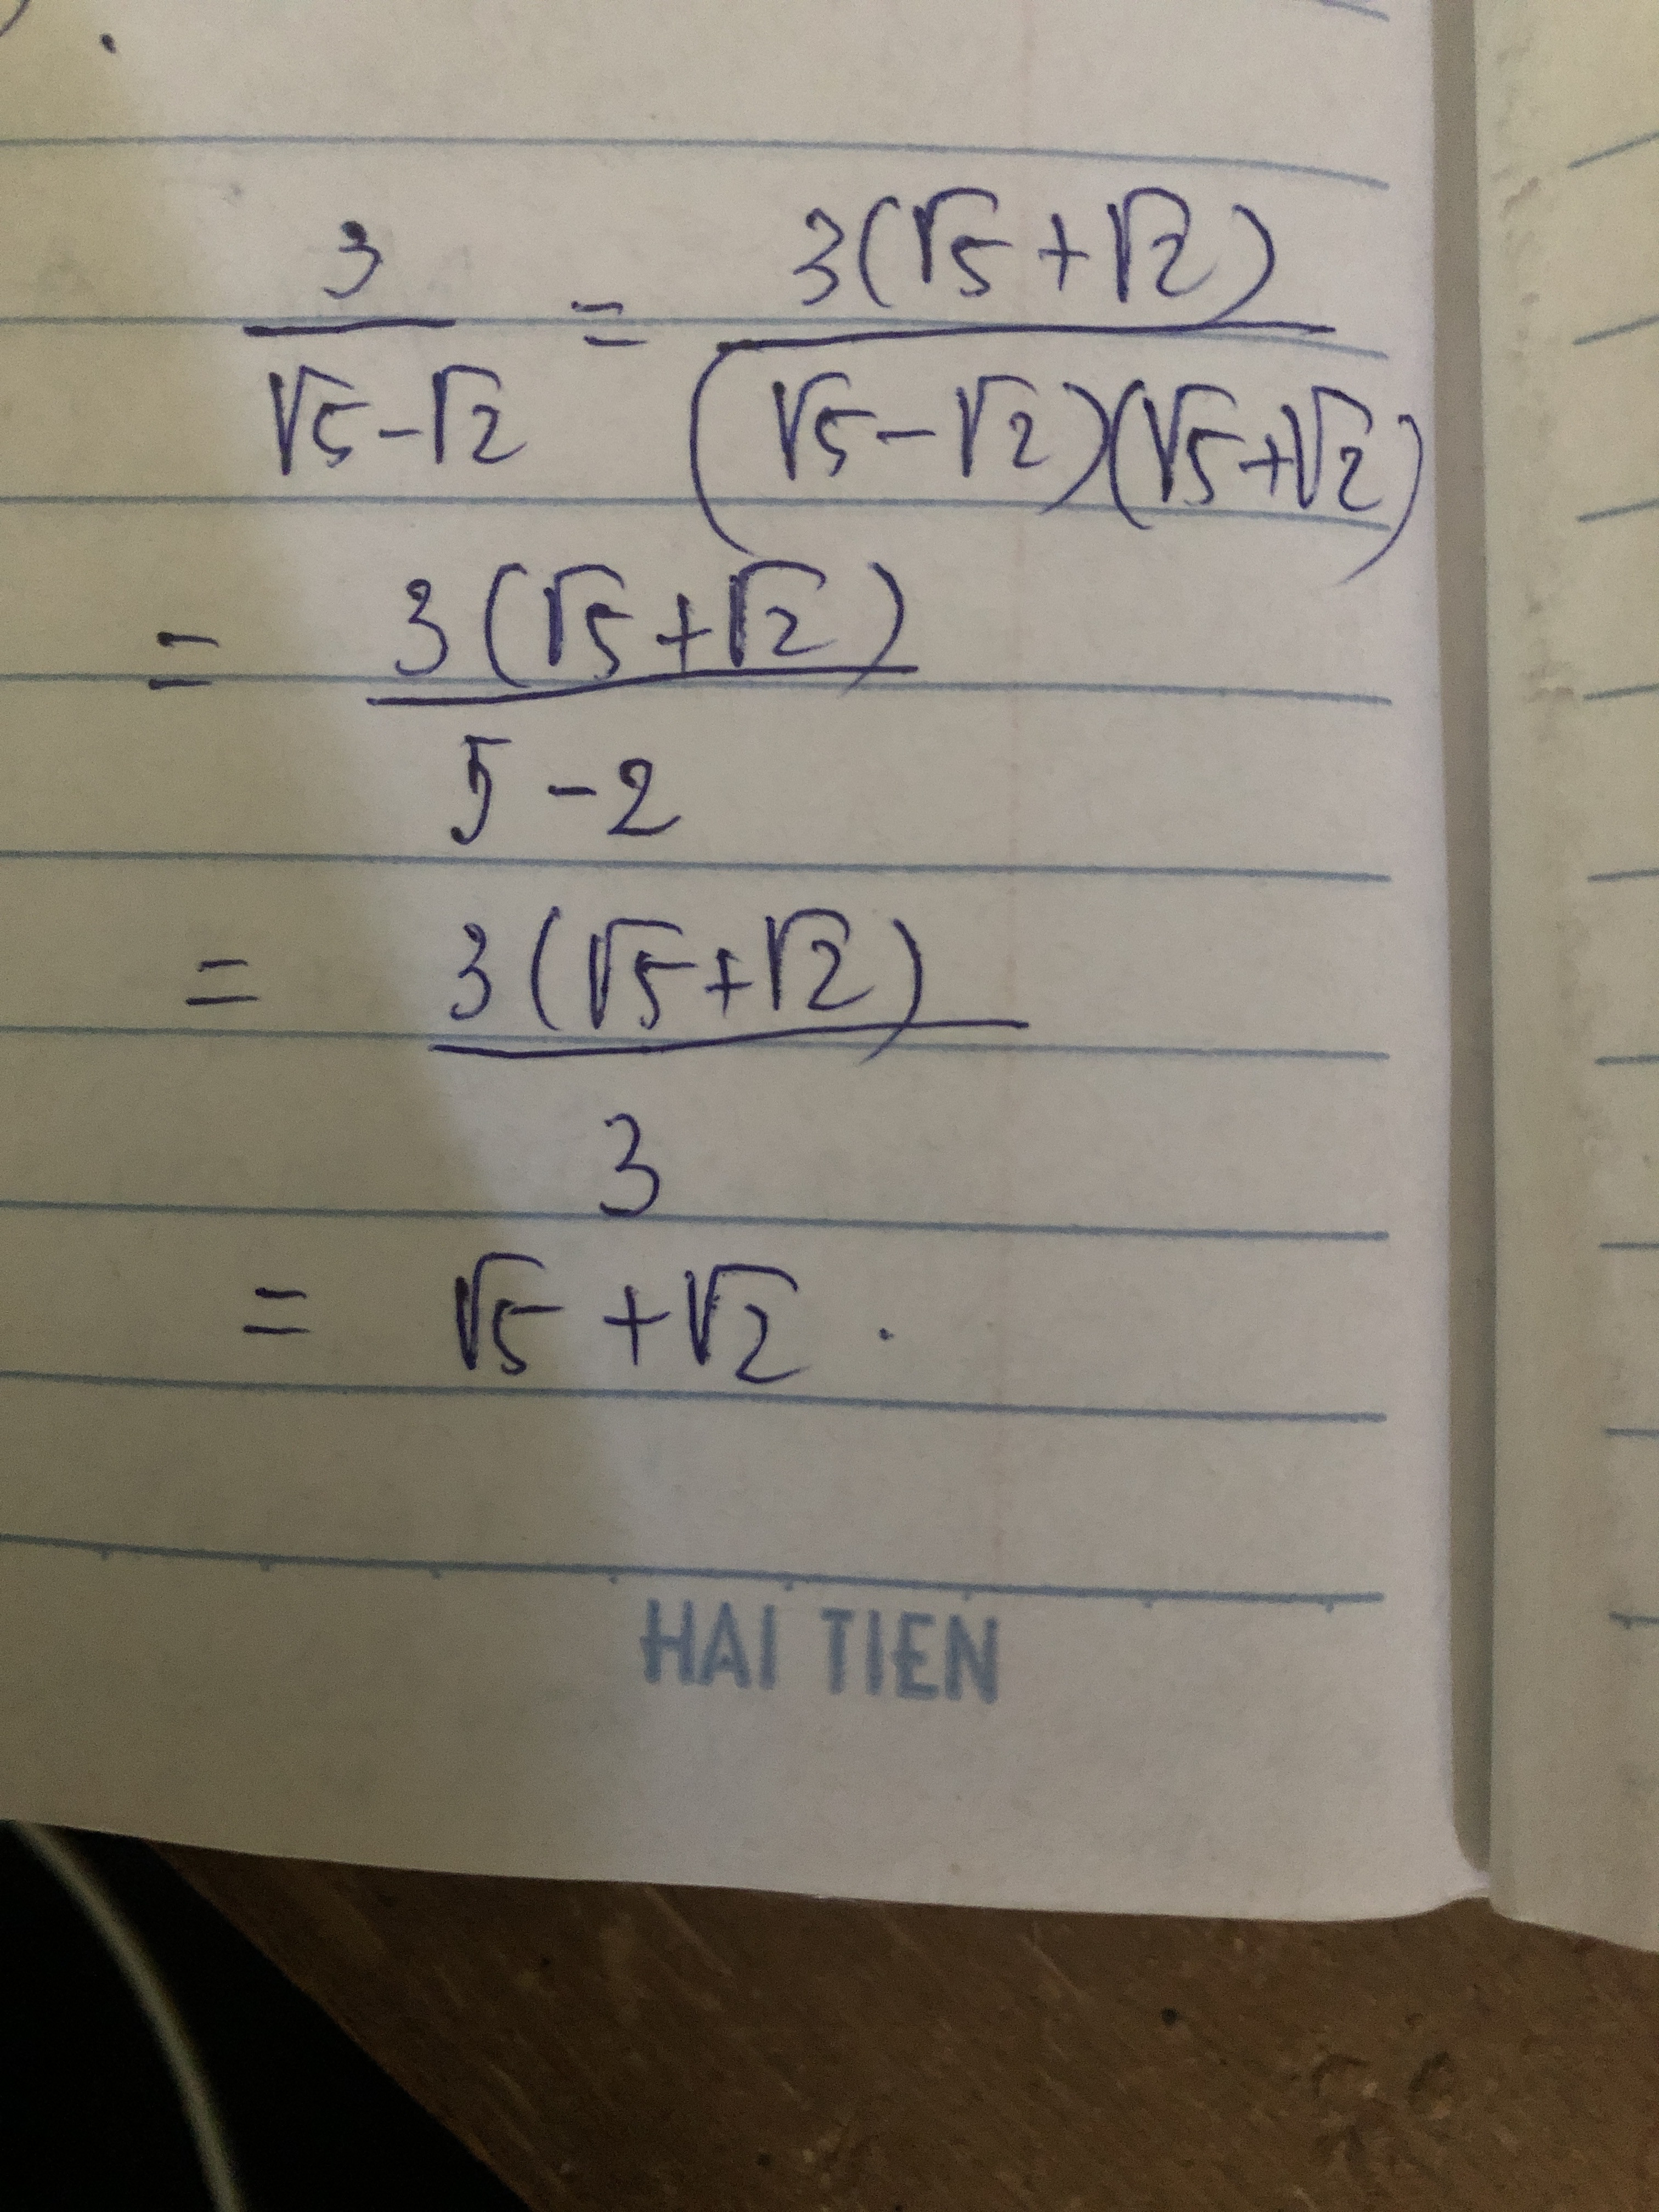 3/(√5-√2) = 3(√5+√2)/((√5-√2)(√5+√2))
= 3(√5+√2)/(5-2)
= 3(√5+√2)/3
= √5+√2.
HAI TIEN